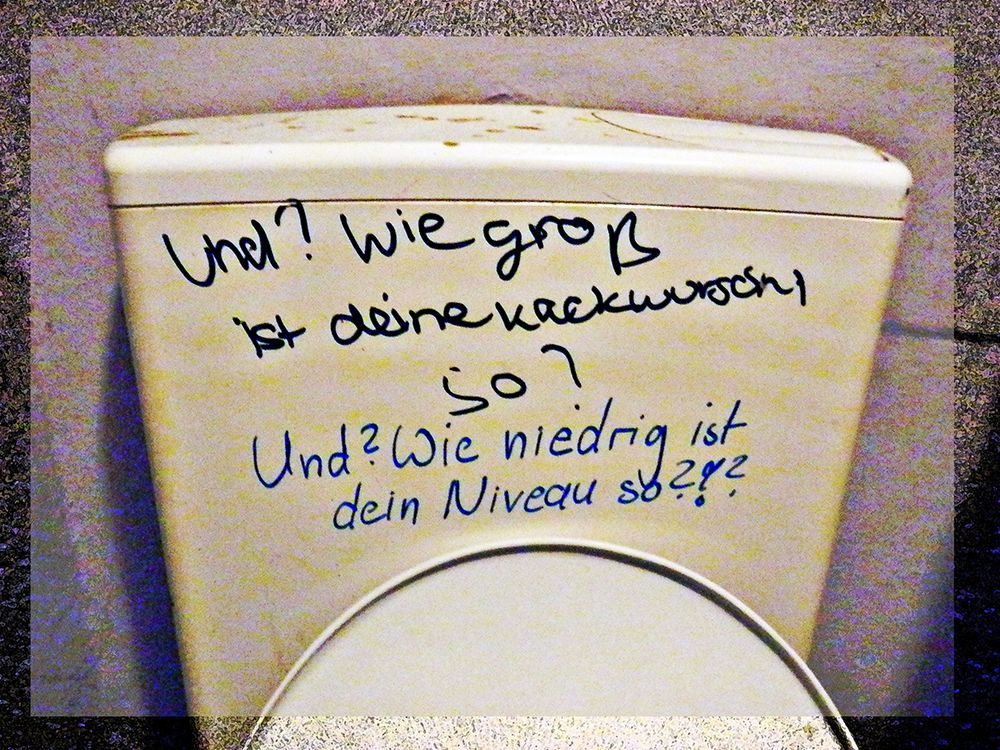 Und? Wie groß
ist deine kackwurscht
so?
Und? Wie niedrig ist
dein Niveau so???